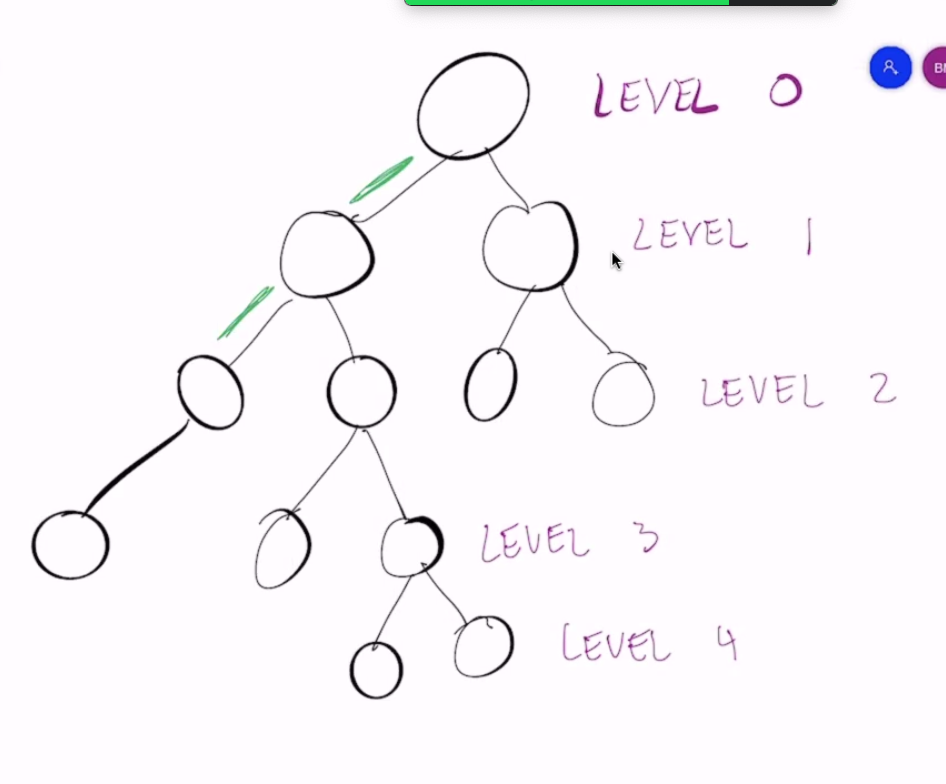 LEVEL 0
LEVEL 1
LEVEL 2
LEVEL 3
LEVEL 4